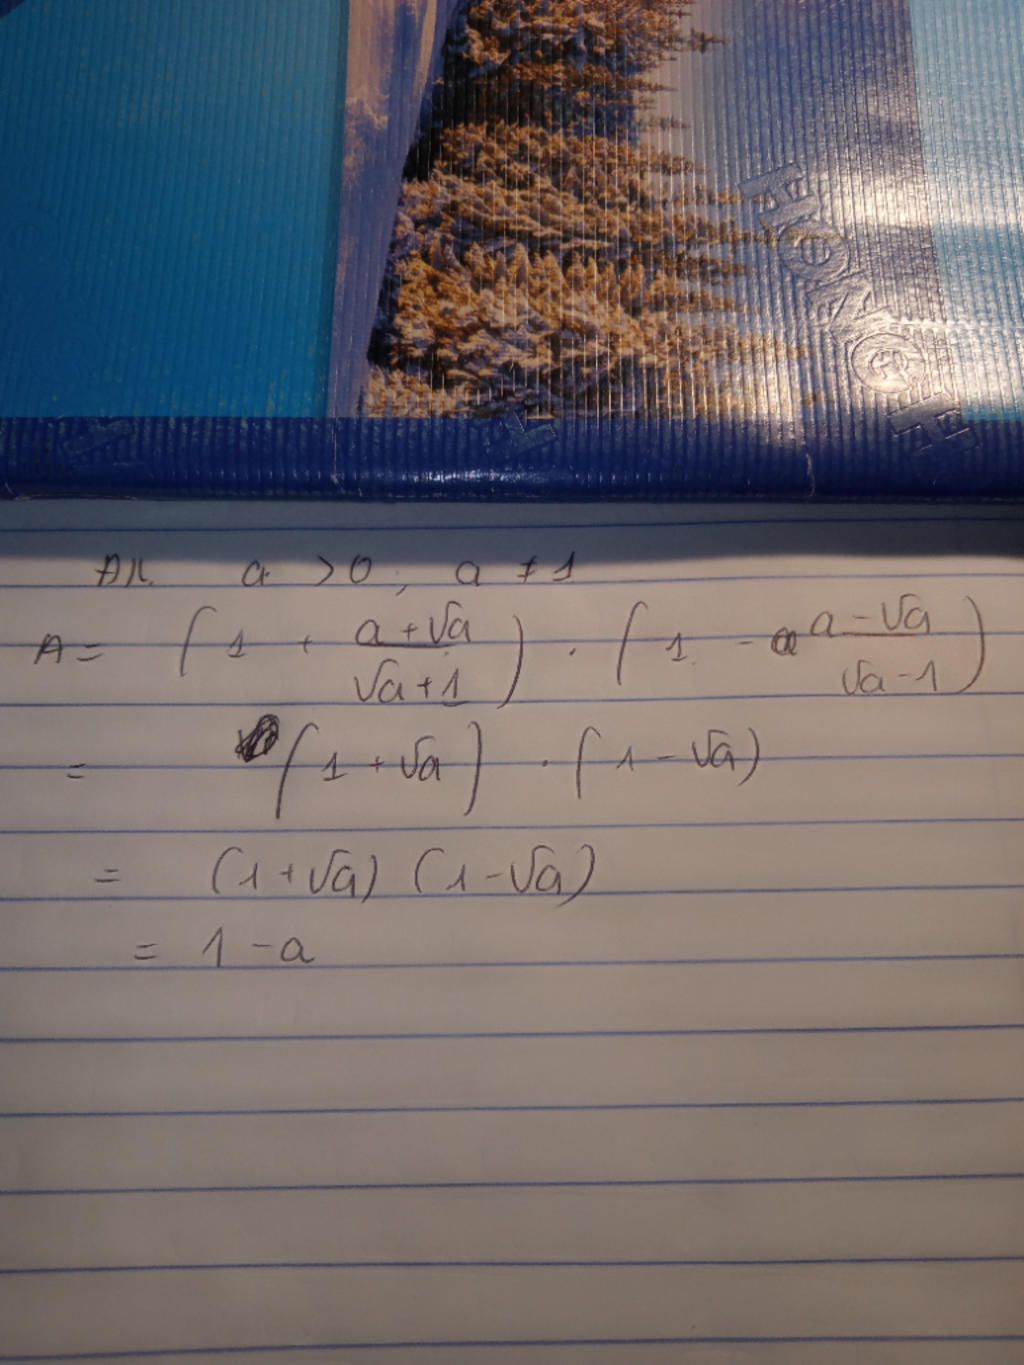 HONGHE
ĐK a > 0 ; a ≠ 1
A = (1 + (a + √a)/(√a + 1)) . (1 - (a - √a)/(√a - 1))
= (1 + √a) . (1 - √a)
= (1 + √a) (1 - √a)
= 1 - a